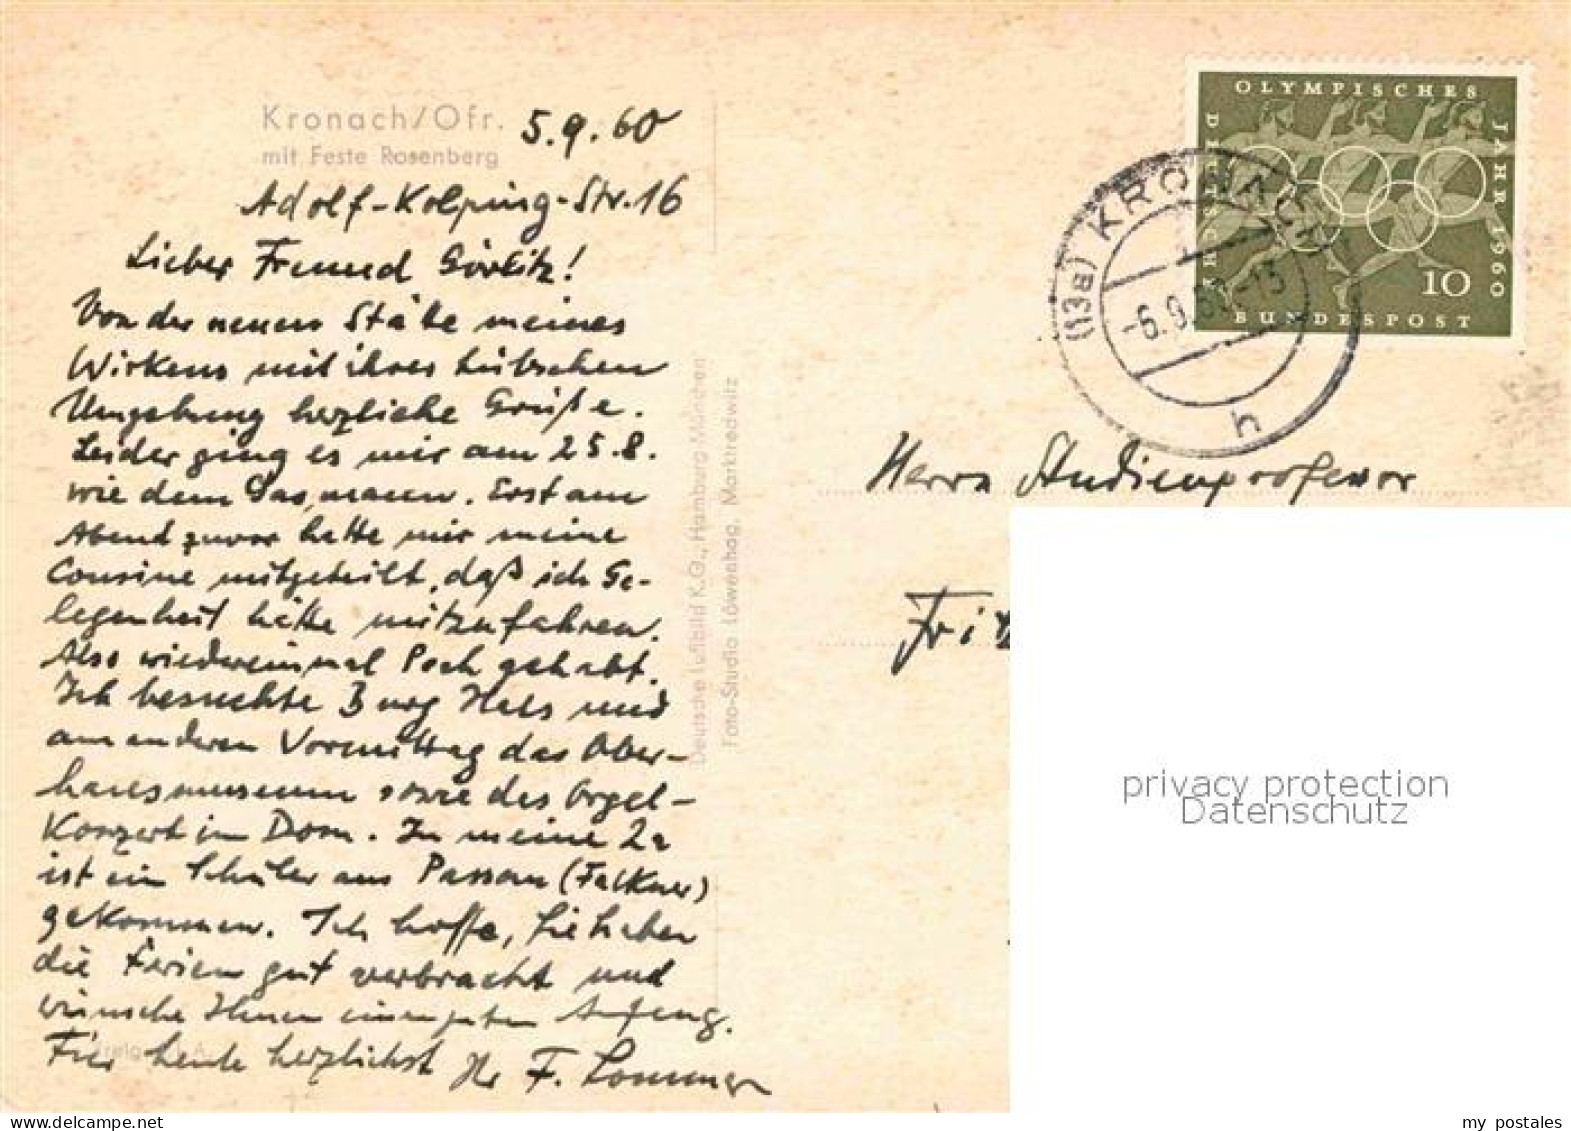 Kronach/Ofr.
mit Feste Rosenberg
5.9.60
Adolf-Kolping-Str.16
Lieber Freund Görlitz!
Von der neuen Stätte meines
Wirkens mit ihrer hübschen
Umgebung herzliche Grüße.
Leider ging es mir am 25.8.
wie dem Erst am
Abend zuvor hatte mir meine
Cousine mitgeteilt, daß ich Ge-
legenheit hätte mitzufahren.
Also wiedereinmal Pech gehabt.
Ich besuchte Burg Hals und
am anderen Vormittag das Ober-
hausmuseum sowie das Orgel-
Konzert im Dom. In meine 2a
ist ein Schüler aus Passau (Falkner)
gekommen. Ich hoffe, Sie haben
die Ferien gut verbracht und
wünsche Ihnen einen guten Anfang.
Für heute herzlichst Ihr F. Lommer
Deutsche Luftbild K.G., Hamburg-München
Foto-Studio Löwenhag, Marktredwitz
OLYMPISCHES
JAHR 1960
DEUTSCHE
BUNDESPOST
10
(13a) KRONACH
-6.9.60-13
h
Herrn Studienprofessor
Fritz
privacy protection
Datenschutz
my postales